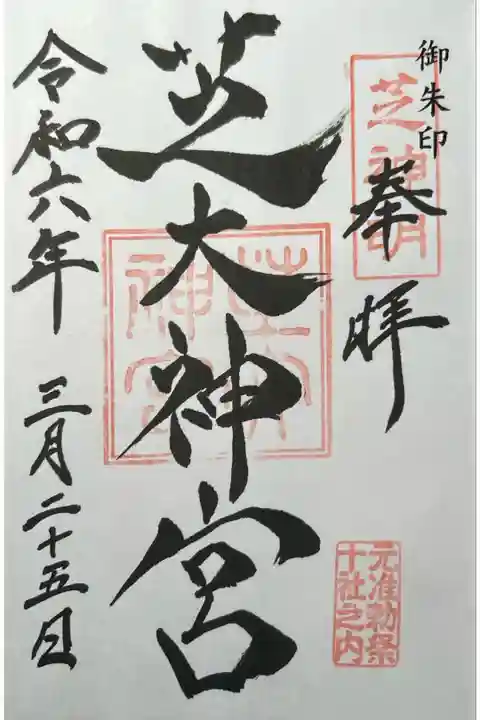 御朱印
奉拝
芝神明
元准勅祭
十社之内
芝大神宮
芝大
神宮
令和六年 三月二十五日